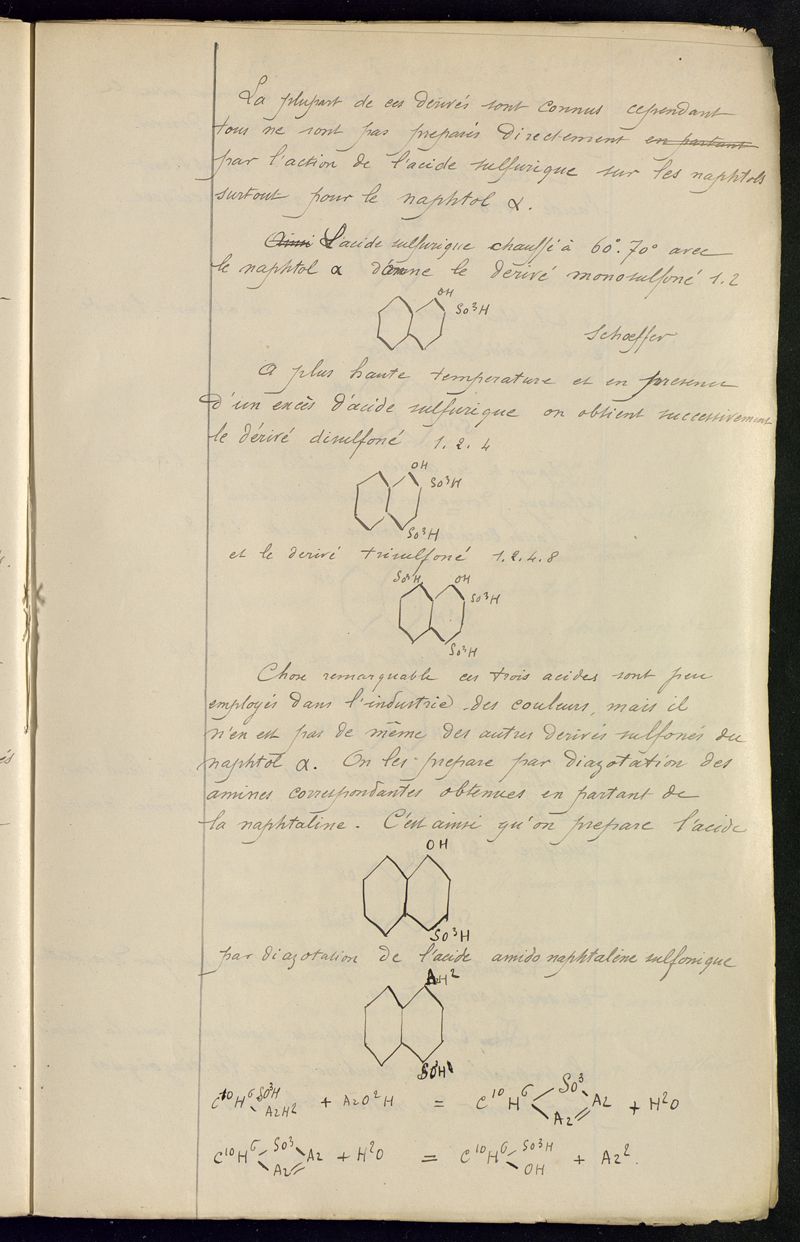 La plupart de ces dérivés sont connus cependant
tous ne sont pas preparés directement en partant
par l'action de l'acide sulfurique sur les naphtols
surtout pour le naphtol α.
Ainsi L'acide sulfurique chauffé à 60°.70° avec
le naphtol α donne le dérivé monosulfoné 1.2
OH
SO³H
Schœffer
A plus haute temperature et en presence
d'un excès d'acide sulfurique on obtient successivement
le dérivé disulfoné 1.2.4
OH
SO³H
SO³H
et le derivé trisulfoné 1.2.4.8
SO³H OH
SO³H
SO³H
Chose remarquable ces trois acides sont peu
employés dans l'industrie des couleurs, mais il
n'en est pas de même des autres derivés sulfonés du
naphtol α. On les prepare par diazotation des
amines correspondantes obtenues en partant de
la naphtaline. C'est ainsi qu'on prepare l'acide
OH
SO³H
par diazotation de l'acide amido naphtaléne sulfonique
AzH²
SO³H
C¹⁰H⁶ SO³H AzH² + AzO²H = C¹⁰H⁶ SO³ Az Az + H²O
C¹⁰H⁶ SO³ Az Az + H²O = C¹⁰H⁶ SO³H OH + Az².